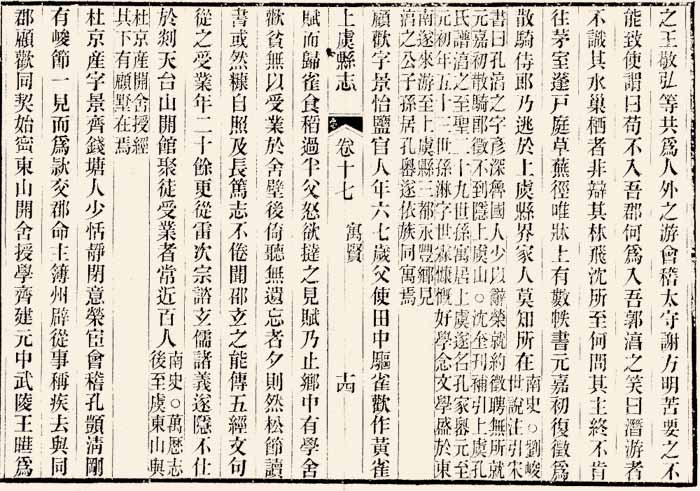 之王敬弘等共爲人外之游會稽太守謝方明苦要之不
能致使謂曰苟不入吾郡何爲入吾郭淳之笑曰潛游者
不識其水巢栖者非辯其林飛沈所至何問其主終不肯
往茅室蓬戸庭草蕪徑唯牀上有數帙書元嘉初復徵爲
散騎侍郎乃逃於上虞縣界家人莫知所在
南史○劉峻
世說注引宋
書曰孔淳之字彥深魯國人少以辭榮就約徵聘無所就
元嘉初散騎郎徵不到隱上虞山○沈奎刊補引上虞孔
氏譜淳之至聖二十九世孫寓居上虞遂名孔家嶴元至
元初年五十三世孫淋字世霖慷慨好學念文學盛於東
南遂來游至上虞縣三都永豐鄉見
淳之公子孫居孔嶴遂依族同寓焉
顧歡字景怡鹽官人年六七歲父使田中驅雀歡作黃雀
賦而歸雀食稻過半父怒欲撻之見賦乃止鄉中有學舍
上虞縣志
卷十七
寓賢
十四
歡貧無以受業於舍壁後倚聽無遺忘者夕則然松節讀
書或然糠自照及長篤志不倦聞邵玄之能傳五經文句
從之受業年二十餘更從雷次宗諮玄儒諸義遂隱不仕
於剡天台山開館聚徒受業者常近百人
南史○萬歷志
後至虞東山與
杜京産開舍授經
其下有顧墅在焉
杜京産字景齊錢塘人少恬靜閉意榮宦會稽孔顗淸剛
有峻節一見而爲款交郡命主簿州辟從事稱疾去與同
郡顧歡同契始寧東山開舍授學齊建元中武陵王曄爲